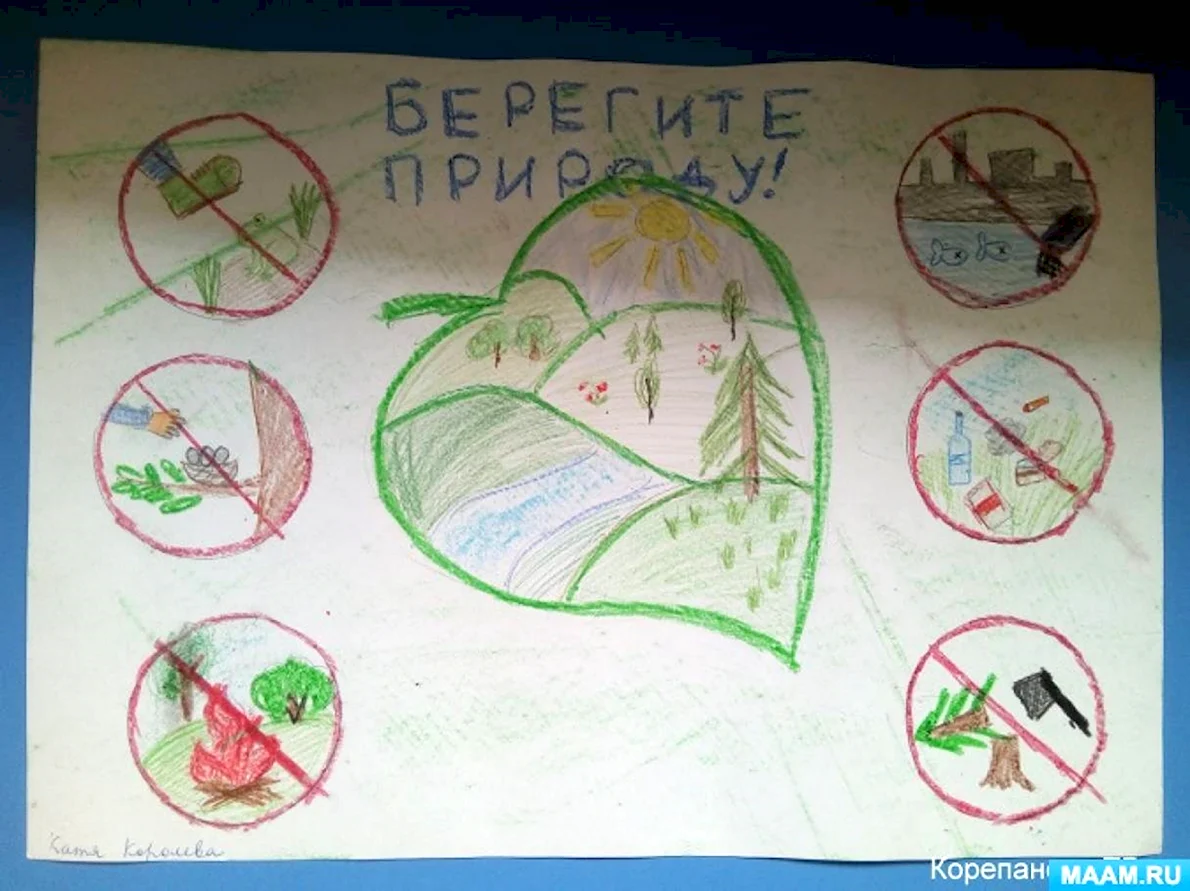 БЕРЕГИТЕ
ПРИРОДУ!
Катя Королева
MAAM.RU